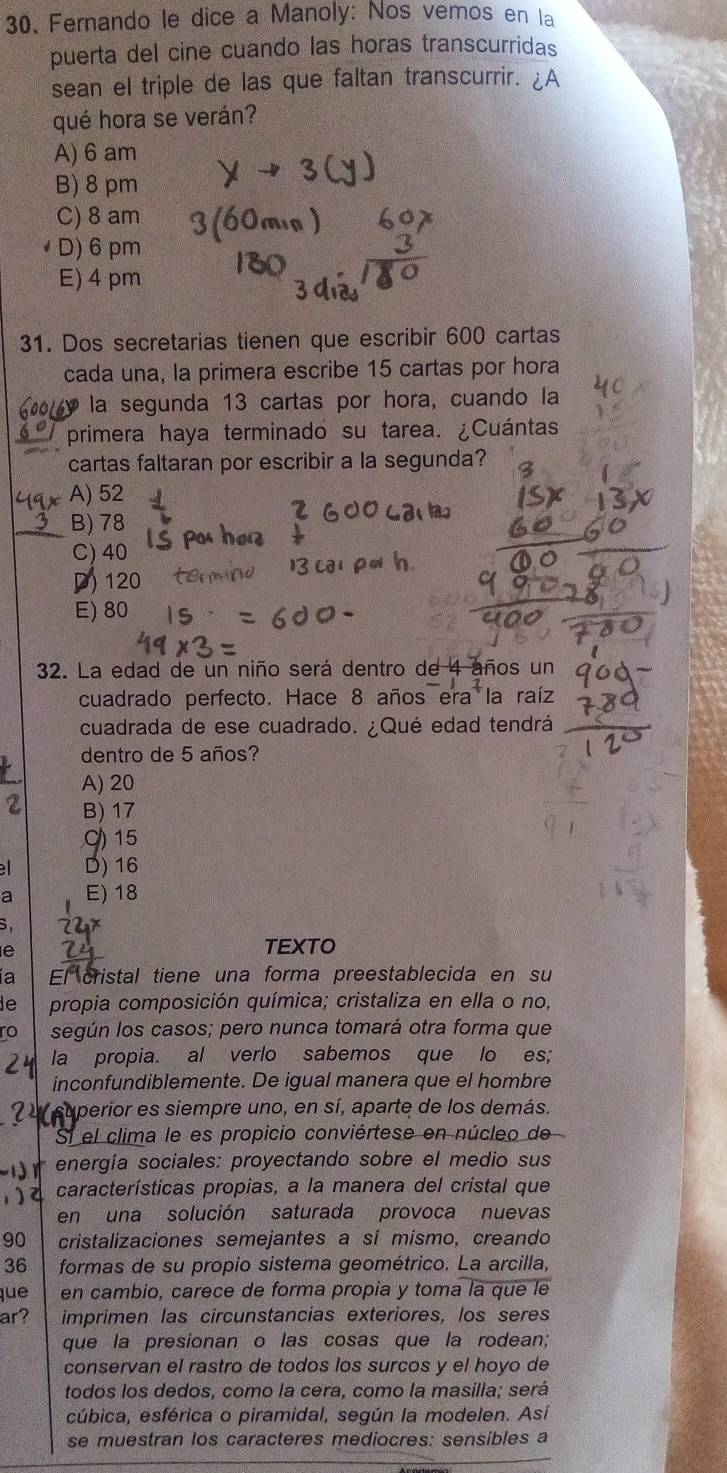 30. Fernando le dice a Manoly: Nos vemos en la
puerta del cine cuando las horas transcurridas
sean el triple de las que faltan transcurrir. ¿A
qué hora se verán?
A) 6 am
B) 8 pm
C) 8 am
D) 6 pm
E) 4 pm
x → 3(y)
3(60min)
180
3 días
60x
3
180
31. Dos secretarias tienen que escribir 600 cartas
cada una, la primera escribe 15 cartas por hora
la segunda 13 cartas por hora, cuando la
primera haya terminado su tarea. ¿Cuántas
cartas faltaran por escribir a la segunda?
A) 52
B) 78
C) 40
D) 120
E) 80
49x
3
15 por hora
termino
2 600 cartas
13 car por h.
15 = 600-
49 x 3 =
15x
60
900
13x
60
780
900-
780
120
32. La edad de un niño será dentro de 4 años un
cuadrado perfecto. Hace 8 años era la raíz
cuadrada de ese cuadrado. ¿Qué edad tendrá
dentro de 5 años?
A) 20
B) 17
C) 15
D) 16
E) 18
24
TEXTO
El cristal tiene una forma preestablecida en su
propia composición química; cristaliza en ella o no,
según los casos; pero nunca tomará otra forma que
la propia. al verlo sabemos que lo es;
inconfundiblemente. De igual manera que el hombre
superior es siempre uno, en sí, aparte de los demás.
Si el clima le es propicio conviértese en núcleo de
energía sociales: proyectando sobre el medio sus
características propias, a la manera del cristal que
en una solución saturada provoca nuevas
90 cristalizaciones semejantes a sí mismo, creando
36 formas de su propio sistema geométrico. La arcilla,
que en cambio, carece de forma propia y toma la que le
ar? imprimen las circunstancias exteriores, los seres
que la presionan o las cosas que la rodean;
conservan el rastro de todos los surcos y el hoyo de
todos los dedos, como la cera, como la masilla; será
cúbica, esférica o piramidal, según la modelen. Así
se muestran los caracteres mediocres: sensibles a